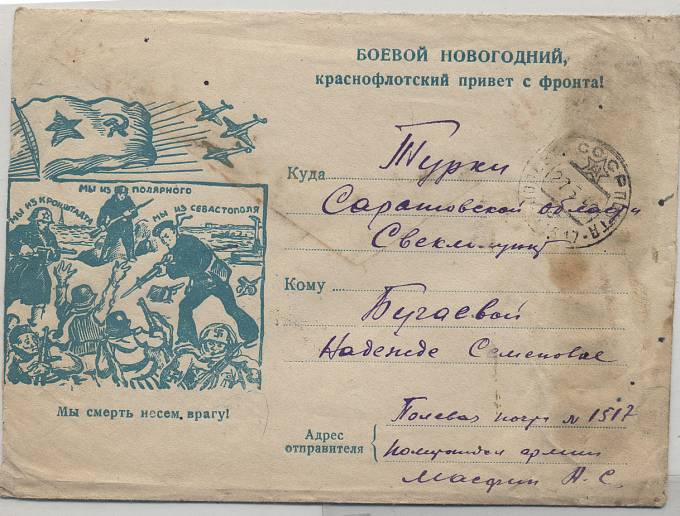 БОЕВОЙ НОВОГОДНИЙ,
краснофлотский привет с фронта!
МЫ ИЗ КРОНШТАДТА
МЫ ИЗ ПОЛЯРНОГО
МЫ ИЗ СЕВАСТОПОЛЯ
Мы смерть несем врагу!
Куда Турки
Саратовской области
Свеклопункт
Кому Бугаевой
Надежде Семеновне
Адрес
отправителя
Полевая почта № 1517
армии
А. С.
СССР